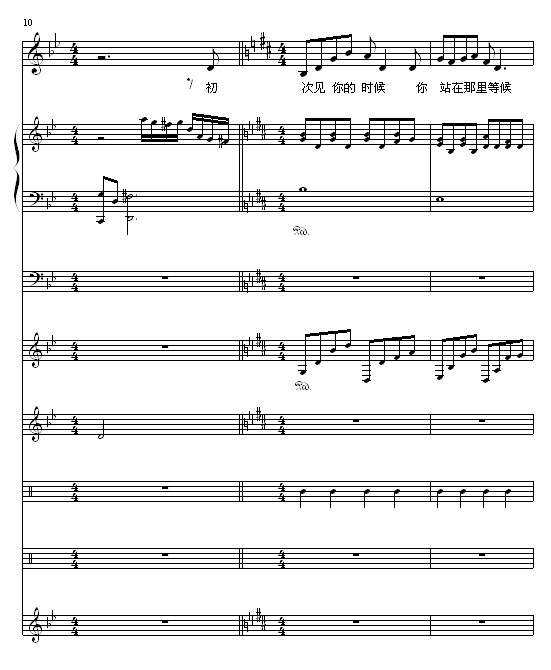 10
初 次见 你的 时候 你 站在那里等候